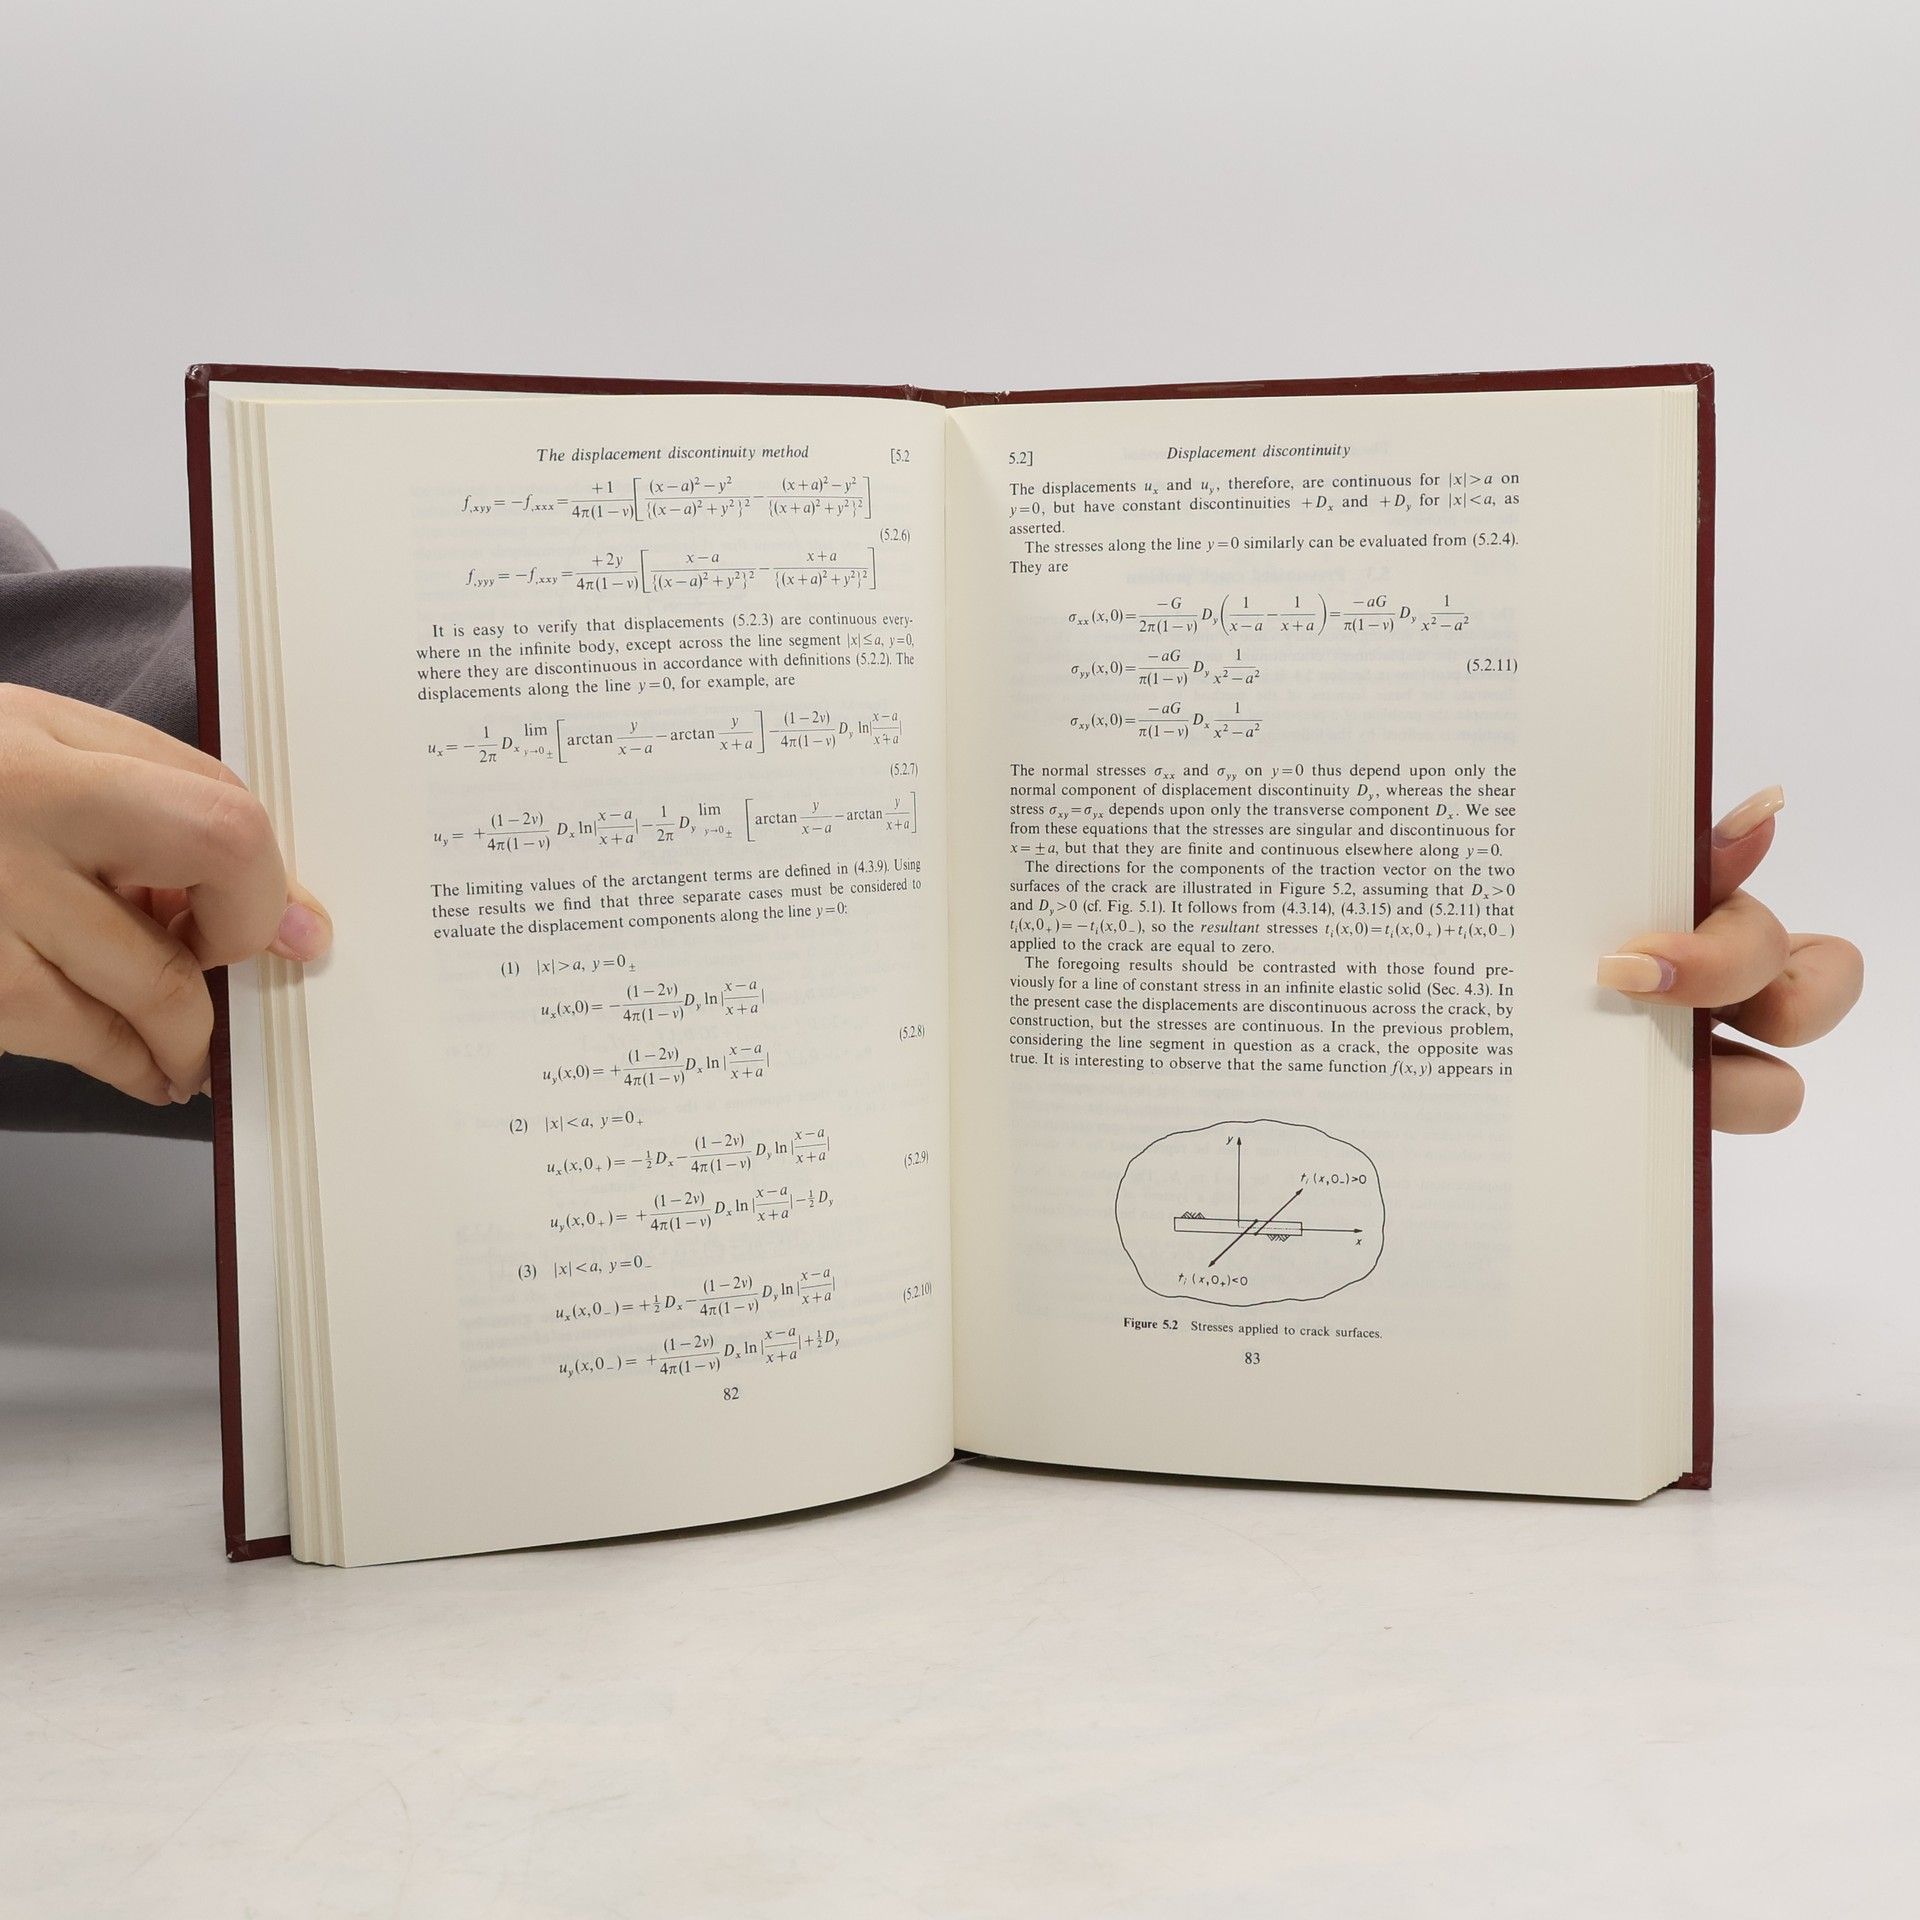 The displacement discontinuity method [5.2
f,xyy = −f,xxx = +1/4π(1−ν) [ (x−a)²−y²/{(x−a)²+y²}² − (x+a)²−y²/{(x+a)²+y²}² ]
(5.2.6)
f,yyy = −f,xxy = +2y/4π(1−ν) [ x−a/{(x−a)²+y²}² − x+a/{(x+a)²+y²}² ]
It is easy to verify that displacements (5.2.3) are continuous every-
where in the infinite body, except across the line segment |x|≤a, y=0,
where they are discontinuous in accordance with definitions (5.2.2). The
displacements along the line y=0, for example, are
uₓ = −1/2π Dₓ lim y→0± [ arctan y/x−a − arctan y/x+a ] − (1−2ν)/4π(1−ν) Dy ln|x−a/x+a|
(5.2.7)
uy = +(1−2ν)/4π(1−ν) Dₓ ln|x−a/x+a| − 1/2π Dy lim y→0± [ arctan y/x−a − arctan y/x+a ]
The limiting values of the arctangent terms are defined in (4.3.9). Using
these results we find that three separate cases must be considered to
evaluate the displacement components along the line y=0:
(1) |x|>a, y=0±
uₓ(x,0) = −(1−2ν)/4π(1−ν) Dy ln|x−a/x+a|
(5.2.8)
uy(x,0) = +(1−2ν)/4π(1−ν) Dₓ ln|x−a/x+a|
(2) |x|<a, y=0₊
uₓ(x,0₊) = −½Dₓ − (1−2ν)/4π(1−ν) Dy ln|x−a/x+a|
(5.2.9)
uy(x,0₊) = +(1−2ν)/4π(1−ν) Dₓ ln|x−a/x+a| − ½Dy
(3) |x|<a, y=0₋
uₓ(x,0₋) = +½Dₓ − (1−2ν)/4π(1−ν) Dy ln|x−a/x+a|
(5.2.10)
uy(x,0₋) = +(1−2ν)/4π(1−ν) Dₓ ln|x−a/x+a| + ½Dy
82
5.2] Displacement discontinuity
The displacements uₓ and uy, therefore, are continuous for |x|>a on
y=0, but have constant discontinuities +Dₓ and +Dy for |x|<a, as
asserted.
The stresses along the line y=0 similarly can be evaluated from (5.2.4).
They are
σxx(x,0) = −G/2π(1−ν) Dy (1/x−a − 1/x+a) = −aG/π(1−ν) Dy 1/x²−a²
σyy(x,0) = −aG/π(1−ν) Dy 1/x²−a² (5.2.11)
σxy(x,0) = −aG/π(1−ν) Dₓ 1/x²−a²
The normal stresses σxx and σyy on y=0 thus depend upon only the
normal component of displacement discontinuity Dy, whereas the shear
stress σxy=σyx depends upon only the transverse component Dₓ. We see
from these equations that the stresses are singular and discontinuous for
x=±a, but that they are finite and continuous elsewhere along y=0.
The directions for the components of the traction vector on the two
surfaces of the crack are illustrated in Figure 5.2, assuming that Dₓ>0
and Dy>0 (cf. Fig. 5.1). It follows from (4.3.14), (4.3.15) and (5.2.11) that
tᵢ(x,0₊)=−tᵢ(x,0₋), so the resultant stresses tᵢ(x,0)=tᵢ(x,0₊)+tᵢ(x,0₋)
applied to the crack are equal to zero.
The foregoing results should be contrasted with those found pre-
viously for a line of constant stress in an infinite elastic solid (Sec. 4.3). In
the present case the displacements are discontinuous across the crack, by
construction, but the stresses are continuous. In the previous problem,
considering the line segment in question as a crack, the opposite was
true. It is interesting to observe that the same function f(x,y) appears in
y
tᵢ (x,0₋)>0
x
tᵢ (x,0₊)<0
Figure 5.2 Stresses applied to crack surfaces.
83